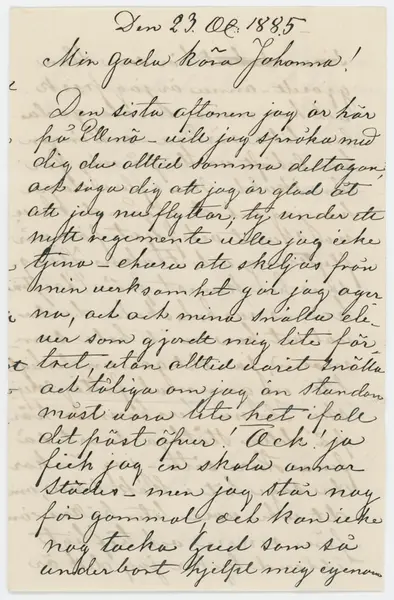 Den 23. Oc. 1885
Min goda kära Johanna!
Den sista aftonen jag är här
på Ellenö – vill jag språka med
dig du alltid samma deltagan,
och säga dig att jag är glad åt
att jag nu flyttar, ty under ett
nytt regemente ville jag icke
tjena – att skiljas från
min verksamhet gör jag oger
na, och och mina snälla ele-
ver som gjordt mig lite för-
tret, utan alltid varit snälla
och tåliga om jag än stundom
måst vara lite het ifall
det påst öfver! Ack! ja
fick jag en skola annor
städes – men jag står nog
för gammal, och kan icke
nog tacka Gud som så
underbart hjelpt mig egenom